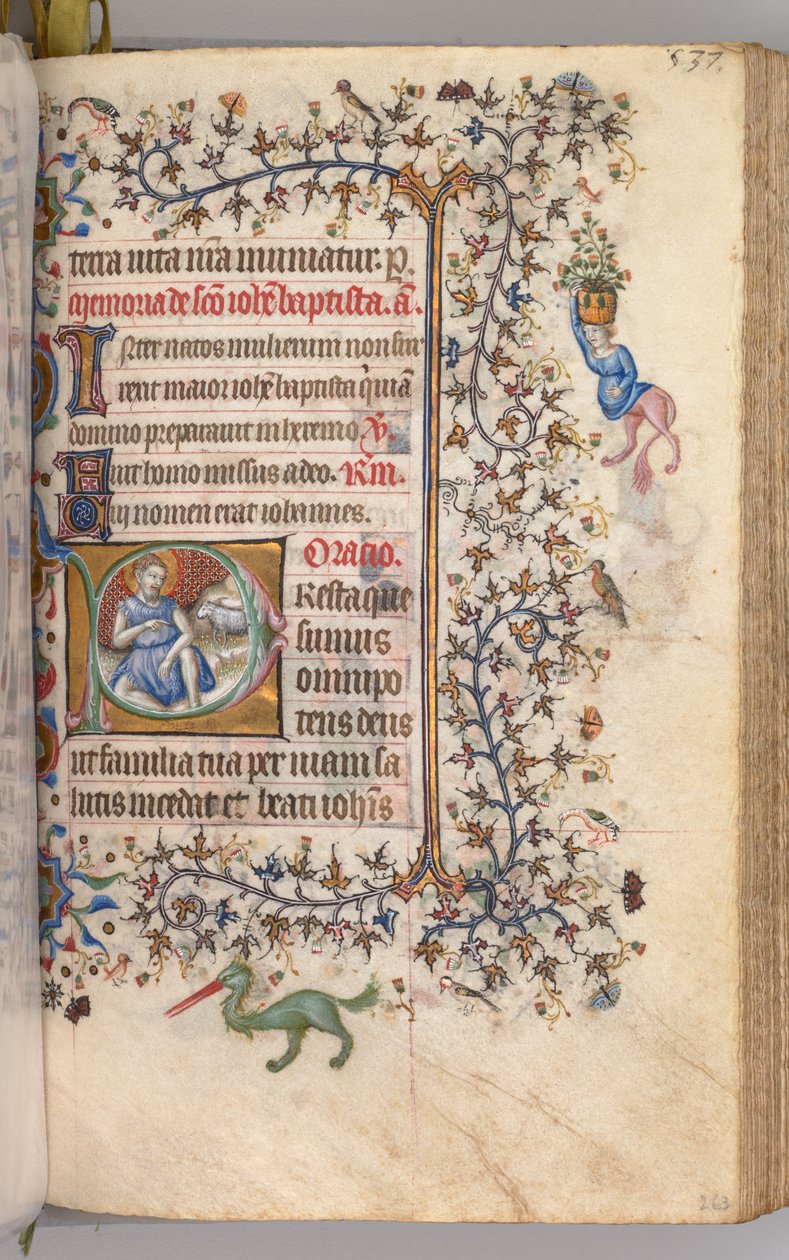 537.
terra uita nr̃a muniatur. P.
Memoria de sc̃o ioh̃e baptista. añ.
Inter natos mulierum non sur
rexit maior ioh̃e baptista qui uiã
domino preparauit in heremo V̉.
Fuit homo missus a deo. R̃m.
Cui nomen erat iohannes.
Oratio.
Presta que
sumus
omnipo
tens deus
ut familia tua per uiam sa
lutis incedat et beati ioh̃is
263